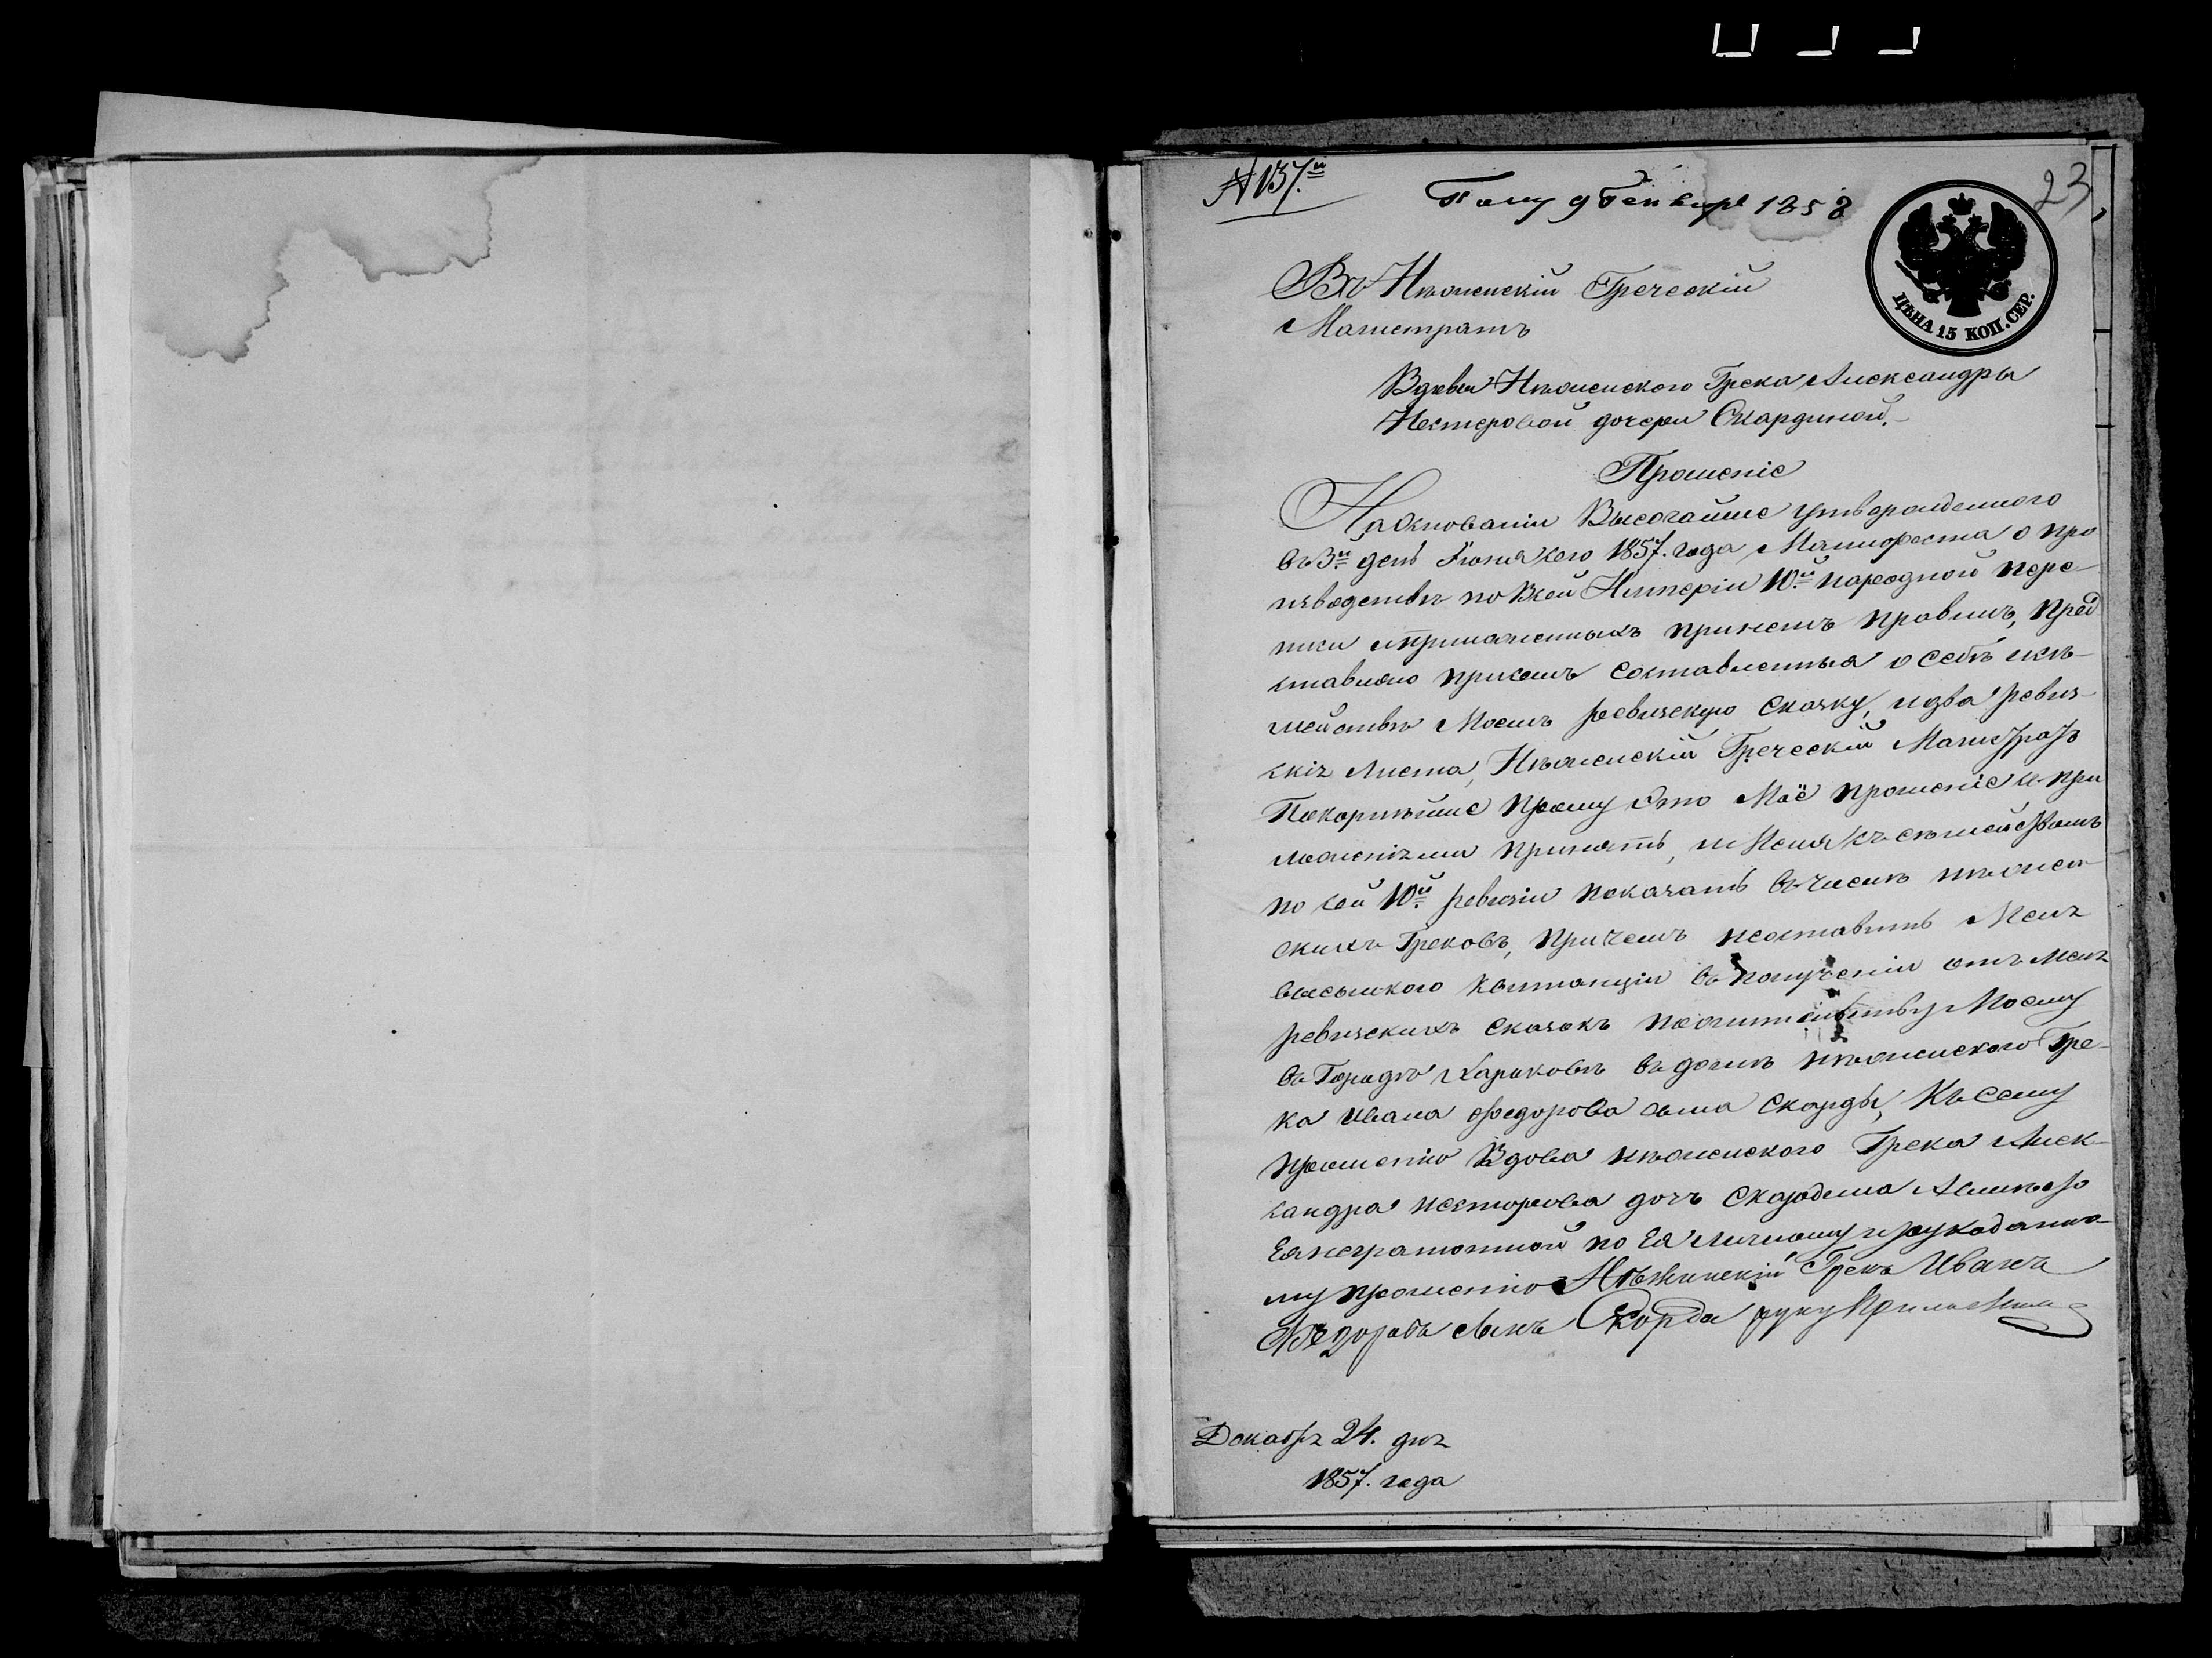 № 137.й
Полу 9 Генваря 1858
23
ЦѢНА 15 КОП. СЕР.
Въ Нѣженскій Греческій
Магистратъ
Вдовы Нѣженского Грека Александры
Нестеровой дочери Скардиной.
Прошеніе
На основаніи Высочайше утвержденного
въ 3й день Іюня сего 1857. года Манифеста о про
изводствѣ по Всей Имперіи 10й народной пере-
писи и приложенныхъ при немъ правилъ, пред
ставляю при семъ составленныя о себѣ и се-
мействѣ Моемъ ревизскую Сказку, и два ревиз-
скія листа, Нѣженскій Греческій Магистратъ
Покорнѣйше прошу Это Моё прошеніе съ при
ложеніями принять, и Меня съ семействомъ
по сей 10й ревизіи показать въ числѣ нѣжен-
скихъ Грековъ, причемъ неоставить Меня
высылкою квитанціи въ полученіи отъ Меня
ревизскихъ сказокъ по жительству Моему
въ Городѣ Харьковѣ въ домѣ нѣженского Гре-
ка Ивана Федорова сына Скарды, Къ сему
прошенію Вдова нѣженского Грека Алек-
сандра Нестерова дочь Скардина А вместо
Ея неграмотной по Ея личному и рукоданно-
му прошенію Нѣжинскій Грекъ Иванъ
Федоровъ сынъ Скорда руку Приложилъ
Декабря 24. дня
1857. года